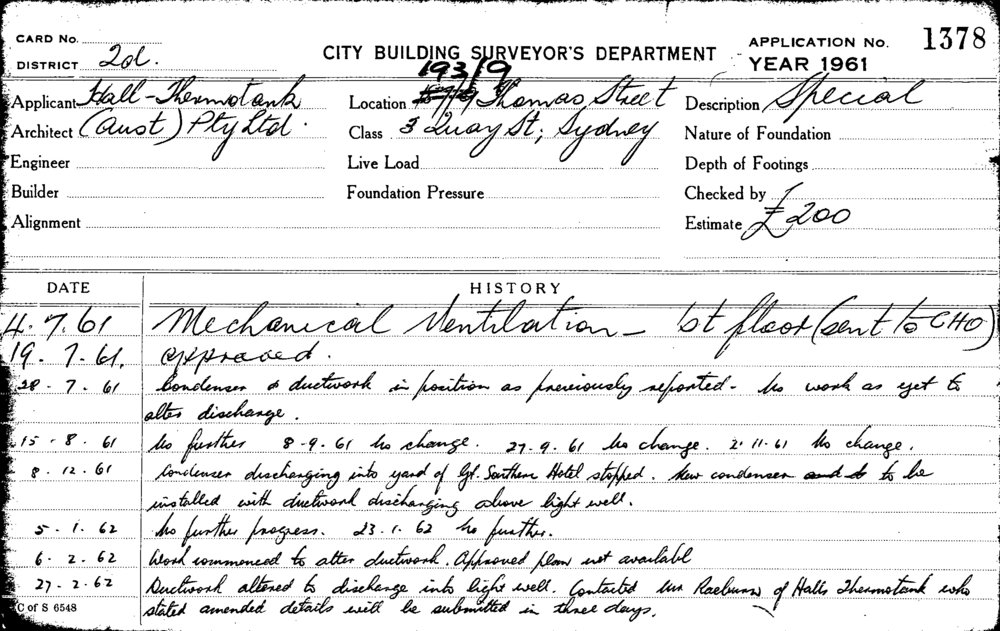 CARD No.
DISTRICT 2d.
CITY BUILDING SURVEYOR'S DEPARTMENT
APPLICATION No. 1378
YEAR 1961
Applicant Hall-Thermotank
Architect (Aust) Pty Ltd.
Engineer
Builder
Alignment
193/9 Thomas Street
Location
Class 3 Quay St; Sydney
Live Load
Foundation Pressure
Description Special
Nature of Foundation
Depth of Footings
Checked by
Estimate £200
DATE HISTORY
4.7.61 Mechanical Ventilation - 1st floor (sent to CHO)
19.7.61. approved.
28.7.61 Condenser & ductwork in position as previously reported - No work as yet to
alter discharge.
15.8.61 No further 8-9.61 No change. 27.9.61 No change. 2.11.61 No change.
8.12.61 Condenser discharging into yard of Gt. Southern Hotel stopped. New condenser to be
installed with ductwork discharging above light well.
5.1.62 No further progress. 23.1.62 No further.
6.2.62 Work commenced to alter ductwork. Approved plan not available
27.2.62 Ductwork altered to discharge into light well. Contacted Mr Raeburn of Halls Thermotank who
stated amended details will be submitted in three days.
C of S 6548